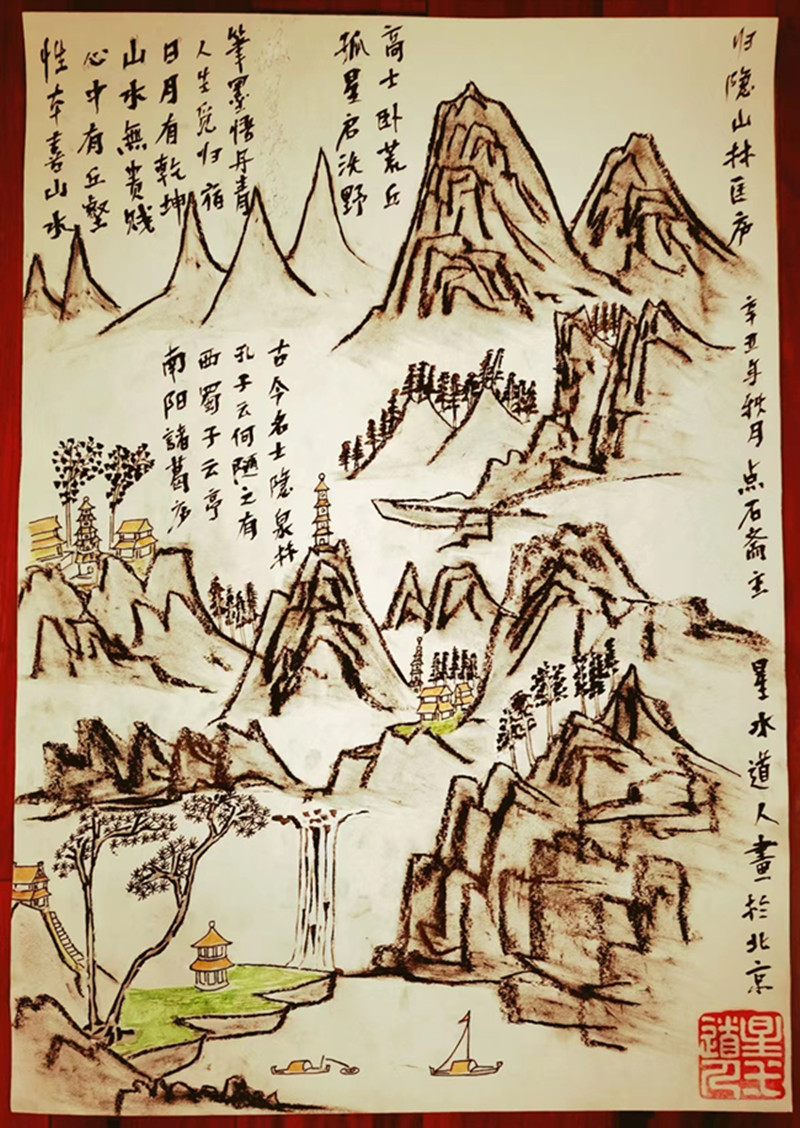 归隐山林匡庐
辛丑年秋月 点石斋主
星水道人畫於北京
高士卧荒丘
孤星启沃野
筆墨悟丹青
人生觅归宿
日月有乾坤
山水無贵贱
心中有丘壑
性本喜山水
古今名士隐泉林
孔子云何陋之有
西蜀子云亭
南阳諸葛庐
星水道人